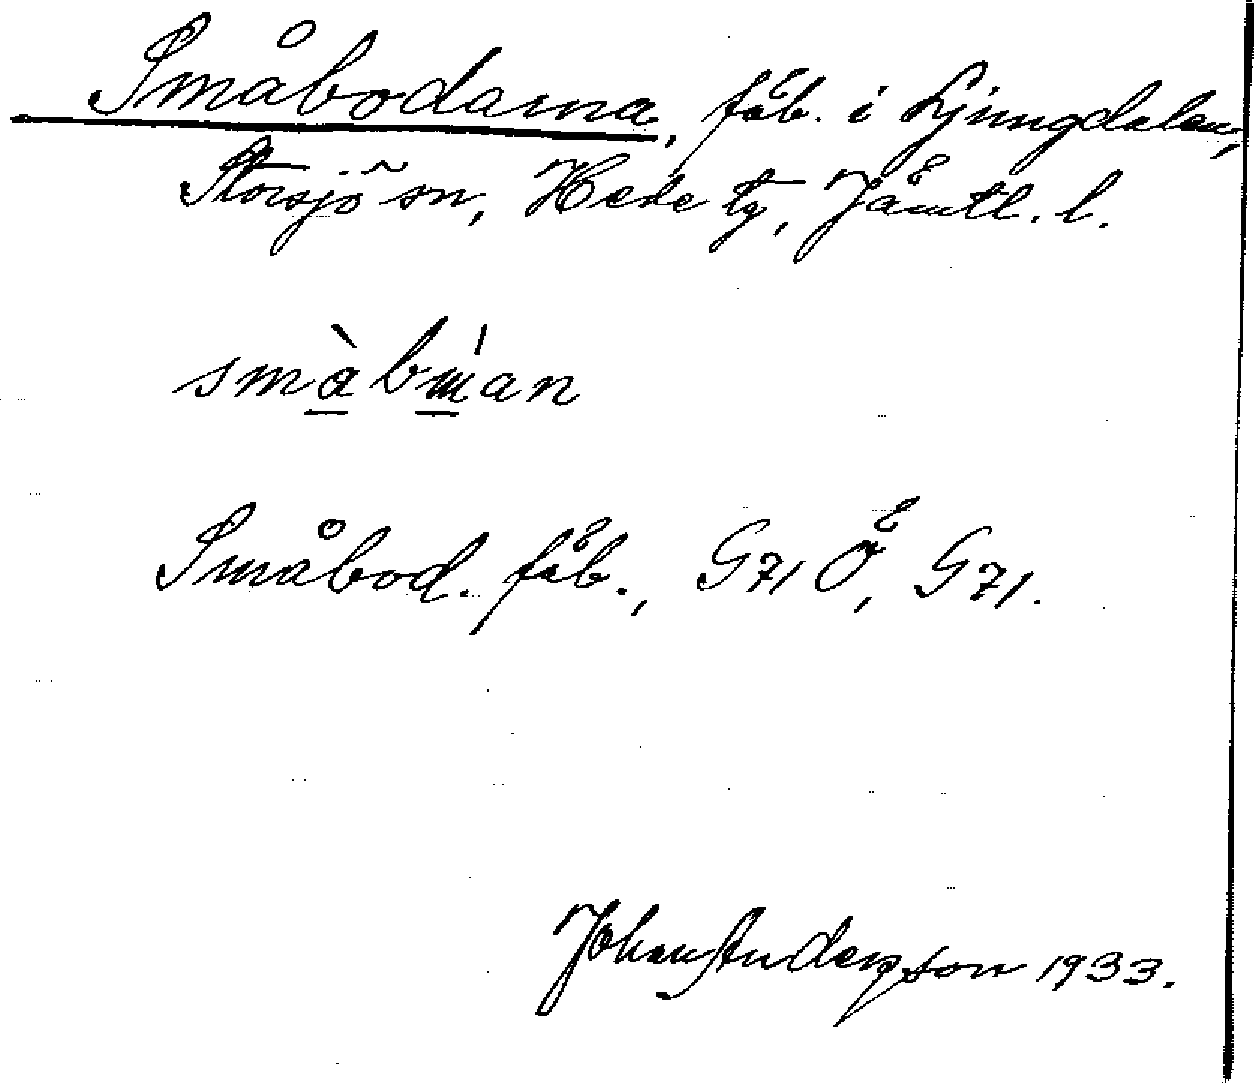 Småbodarna, fäb. i Ljungdalen,
Storsjö sn, Hede tg, Jämtl. l.
småbɯ́an
Småbod. fäb., G71 Ö, G71.
Johan Anderson 1933.